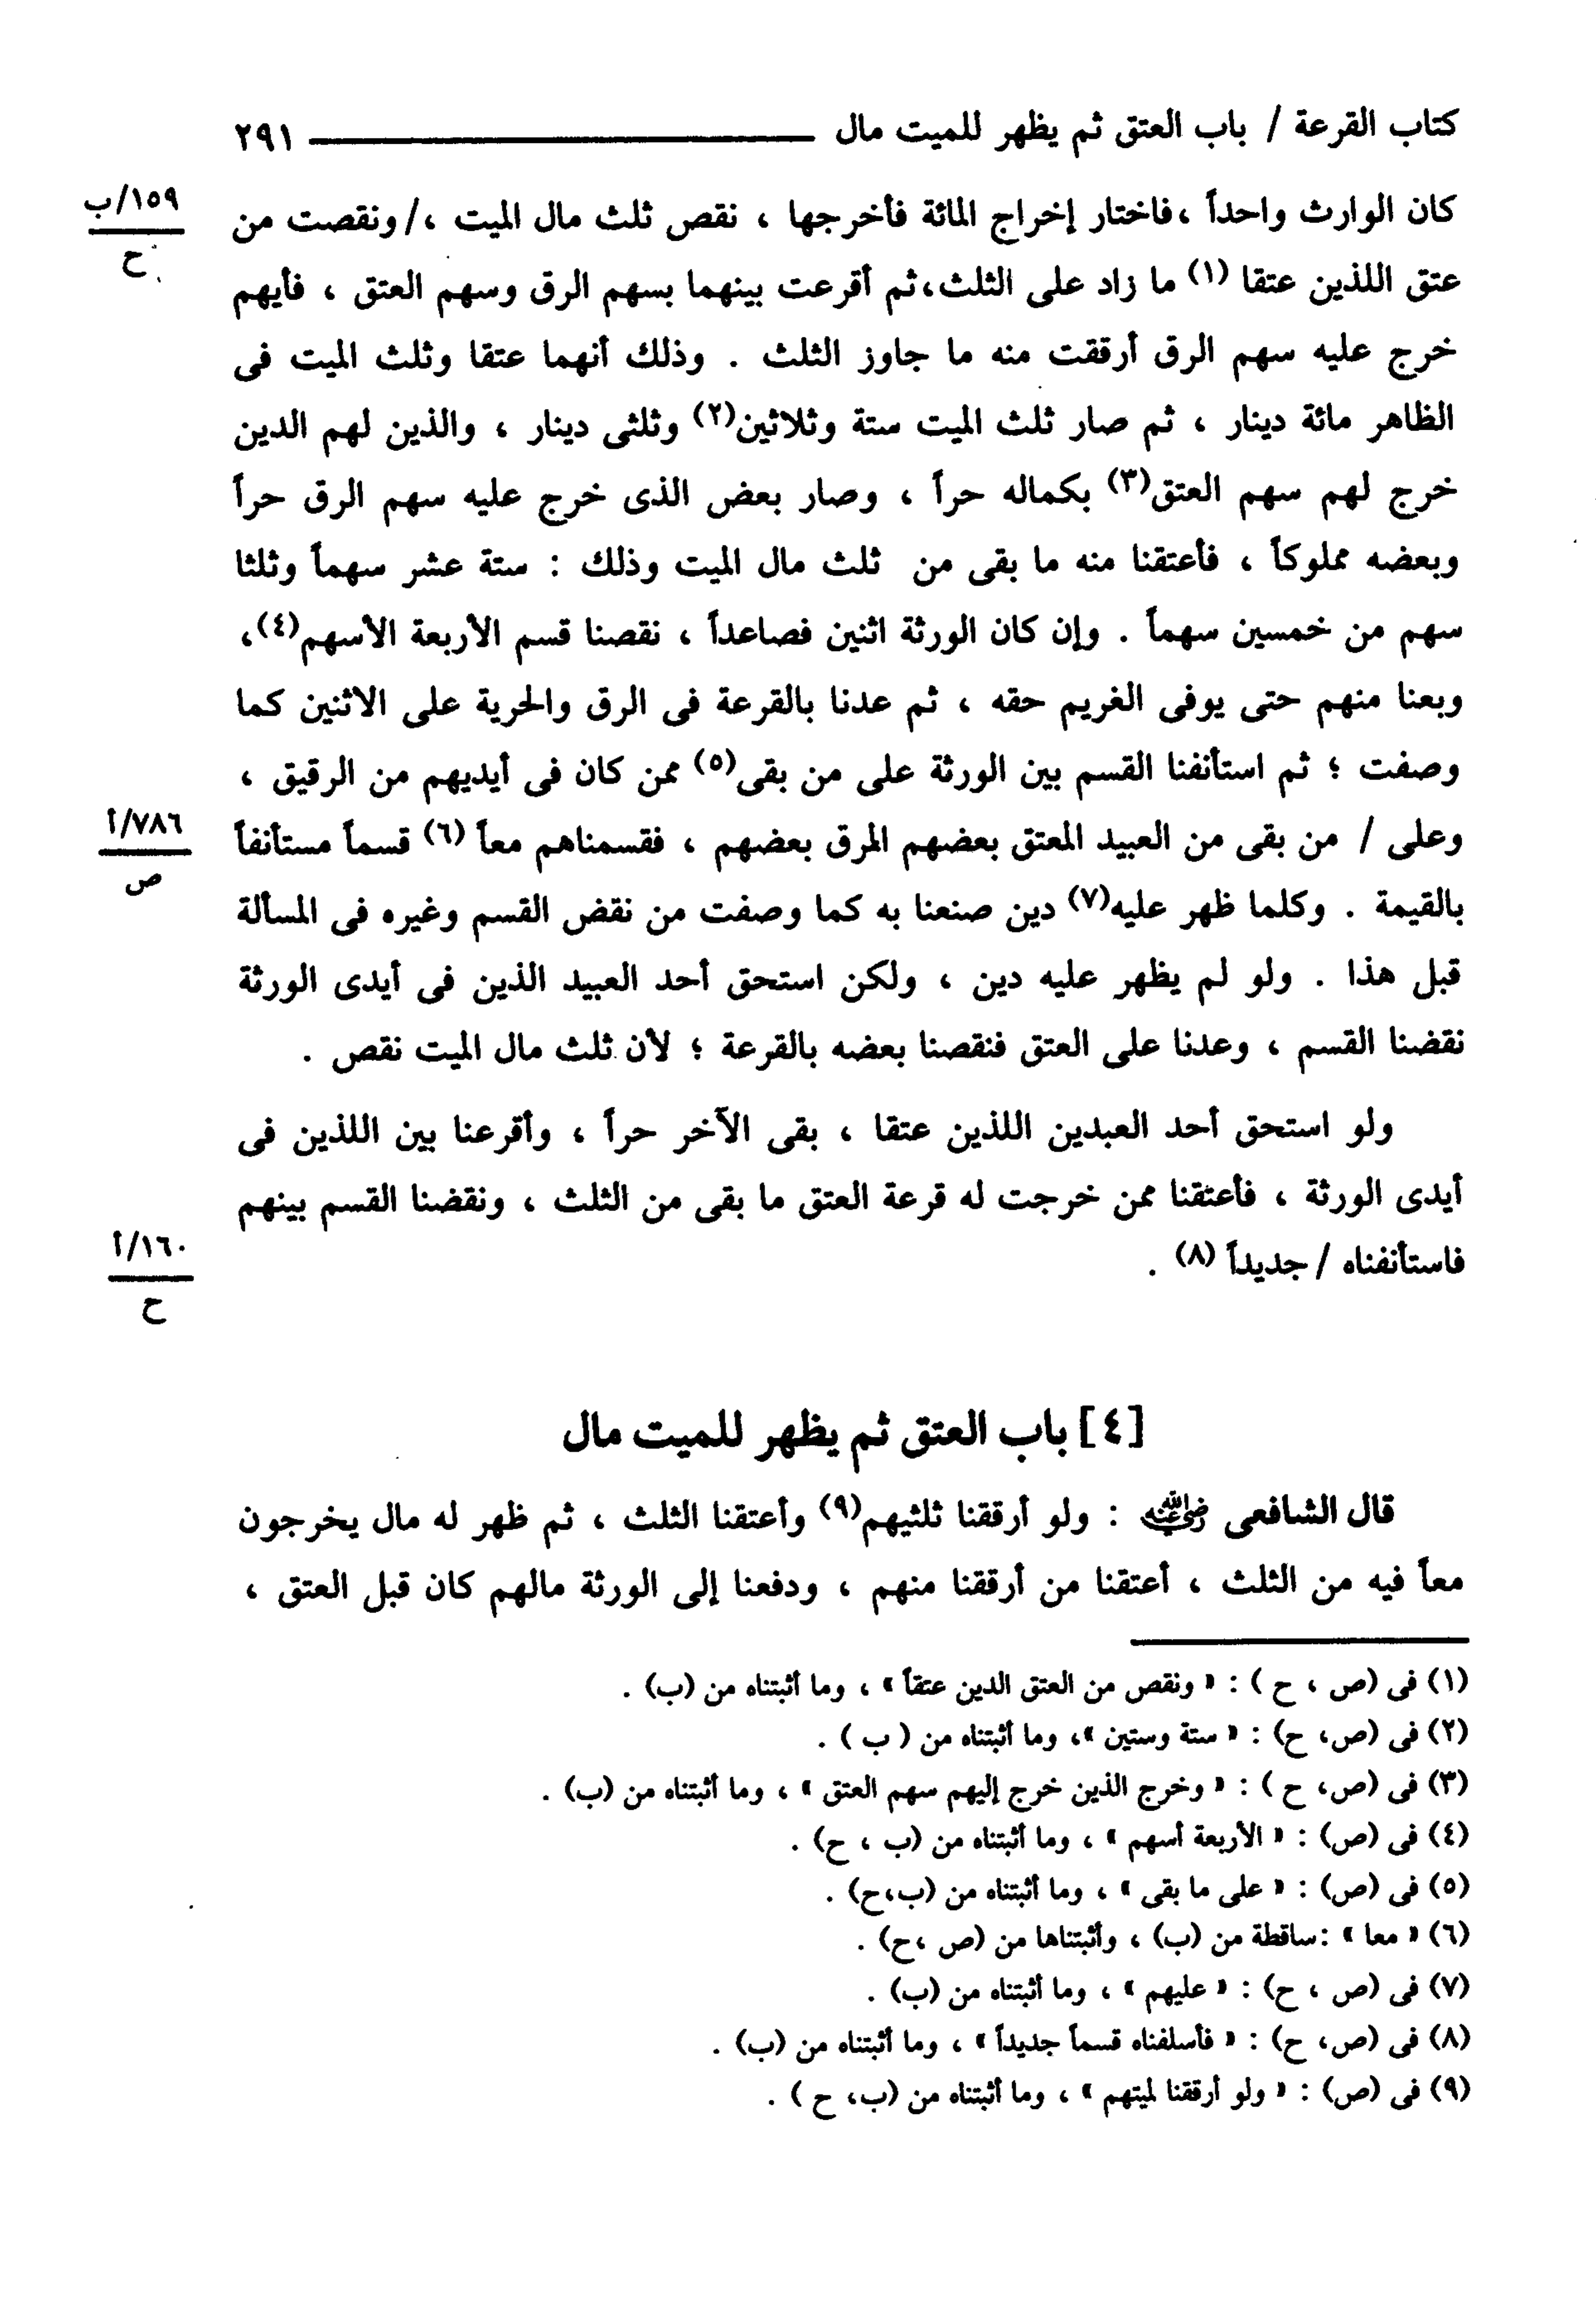 كتاب القرعة / باب العتق ثم يظهر للميت مال ـــــــــــ ٢٩١
كان الوارث واحداً ،فاختار إخراج المائة فأخرجها ، نقص ثلث مال الميت ،/ ونقصت من
١٥٩/ب
ح
عتق اللذين عتقا (١) ما زاد على الثلث،ثم أقرعت بينهما بسهم الرق وسهم العتق ، فأيهم
خرج عليه سهم الرق أرققت منه ما جاوز الثلث . وذلك أنهما عتقا وثلث الميت فى
الظاهر مائة دينار ، ثم صار ثلث الميت ستة وثلاثين(٢) وثلثى دينار ، والذين لهم الدين
خرج لهم سهم العتق(٣) بكماله حراً ، وصار بعض الذى خرج عليه سهم الرق حراً
وبعضه مملوكاً ، فأعتقنا منه ما بقى من ثلث مال الميت وذلك : ستة عشر سهماً وثلثا
سهم من خمسين سهماً . وإن كان الورثة اثنين فصاعداً ، نقصنا قسم الأربعة الأسهم(٤)،
وبعنا منهم حتى يوفى الغريم حقه ، ثم عدنا بالقرعة فى الرق والحرية على الاثنين كما
وصفت ؛ ثم استأنفنا القسم بين الورثة على من بقى(٥) ممن كان فى أيديهم من الرقيق ،
وعلى / من بقى من العبيد المعتق بعضهم المرق بعضهم ، فقسمناهم معاً (٦) قسماً مستأنفاً
٧٨٦/أ
ص
بالقيمة . وكلما ظهر عليه(٧) دين صنعنا به كما وصفت من نقض القسم وغيره فى المسألة
قبل هذا . ولو لم يظهر عليه دين ، ولكن استحق أحد العبيد الذين فى أيدى الورثة
نقضنا القسم ، وعدنا على العتق فنقصنا بعضه بالقرعة ؛ لأن ثلث مال الميت نقص .
ولو استحق أحد العبدين اللذين عتقا ، بقى الآخر حراً ، وأقرعنا بين اللذين فى
أيدى الورثة ، فأعتقنا ممن خرجت له قرعة العتق ما بقى من الثلث ، ونقضنا القسم بينهم
فاستأنفناه / جديداً (٨) .
١٦٠/أ
ح
[٤] باب العتق ثم يظهر للميت مال
قال الشافعى رضي الله عنه : ولو أرققنا ثلثيهم(٩) وأعتقنا الثلث ، ثم ظهر له مال يخرجون
معاً فيه من الثلث ، أعتقنا من أرققنا منهم ، ودفعنا إلى الورثة مالهم كان قبل العتق ،
(١) فى (ص ، ح ) : « ونقص من العتق الدين عتقاً » ، وما أثبتناه من (ب) .
(٢) فى (ص، ح) : « ستة وستين »، وما أثبتناه من ( ب ) .
(٣) فى (ص، ح ) : « وخرج الذين خرج إليهم سهم العتق » ، وما أثبتناه من (ب) .
(٤) فى (ص) : « الأربعة أسهم » ، وما أثبتناه من (ب ، ح) .
(٥) فى (ص) : « على ما بقى » ، وما أثبتناه من (ب،ح) .
(٦) « معا » :ساقطة من (ب) ، وأثبتناها من (ص ،ح) .
(٧) فى (ص ، ح) : « عليهم » ، وما أثبتناه من (ب) .
(٨) فى (ص، ح) : « فأسلفناه قسماً جديداً » ، وما أثبتناه من (ب) .
(٩) فى (ص) : « ولو أرققنا لميتهم » ، وما أثبتناه من (ب، ح ) .